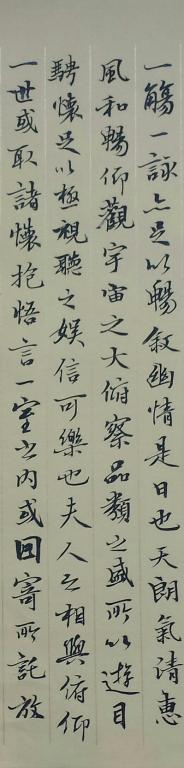 一觴一詠亦足以暢叙幽情是日也天朗氣清惠
風和暢仰觀宇宙之大俯察品類之盛所以遊目
騁懷足以極視聽之娱信可樂也夫人之相與俯仰
一世或取諸懷抱悟言一室之内或回寄所託放